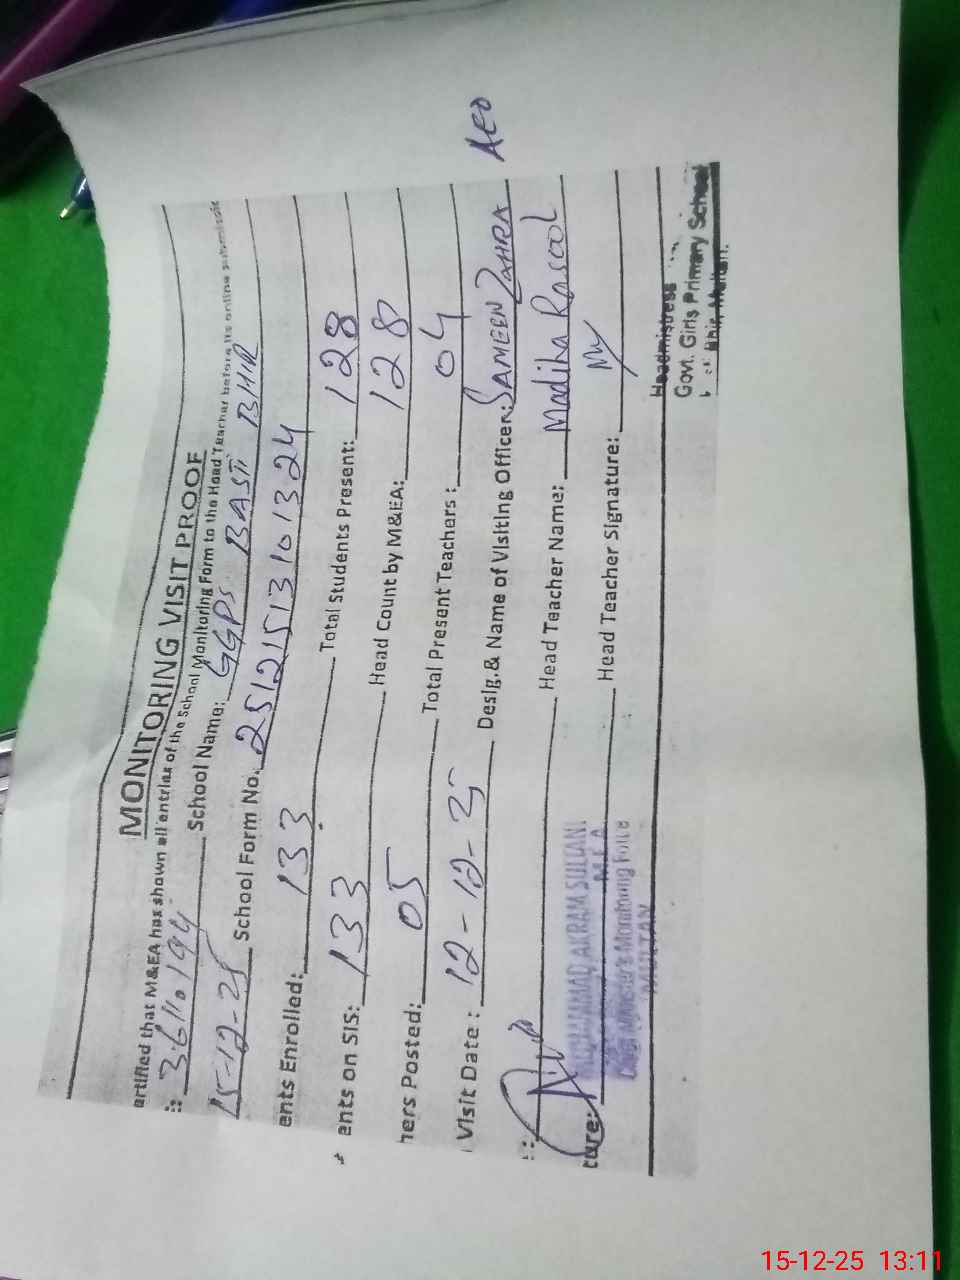 MONITORING VISIT PROOF
ertified that M&EA has shown all entries of the School Monitoring Form to the Head Teacher before its online submission
:: 36110194 School Name: GGPS BASTI BHIR
15-12-25 School Form No. 25121513101324
ents Enrolled: 133 Total Students Present: 128
ents on SIS: 133 Head Count by M&EA: 128
hers Posted: 05 Total Present Teachers: 04
Visit Date: 12-12-25 Desig.& Name of Visiting Officer: SAMEEN ZAHRA AEO
Head Teacher Name: Madiha Rasool
ture: Head Teacher Signature:
MUHAMMAD AKRAM SULTANI
M.E.A
Chief Minister's Monitoring Force
MULTAN
Headmistress
Govt. Girls Primary School
Bhir, Multan.
15-12-25 13:11